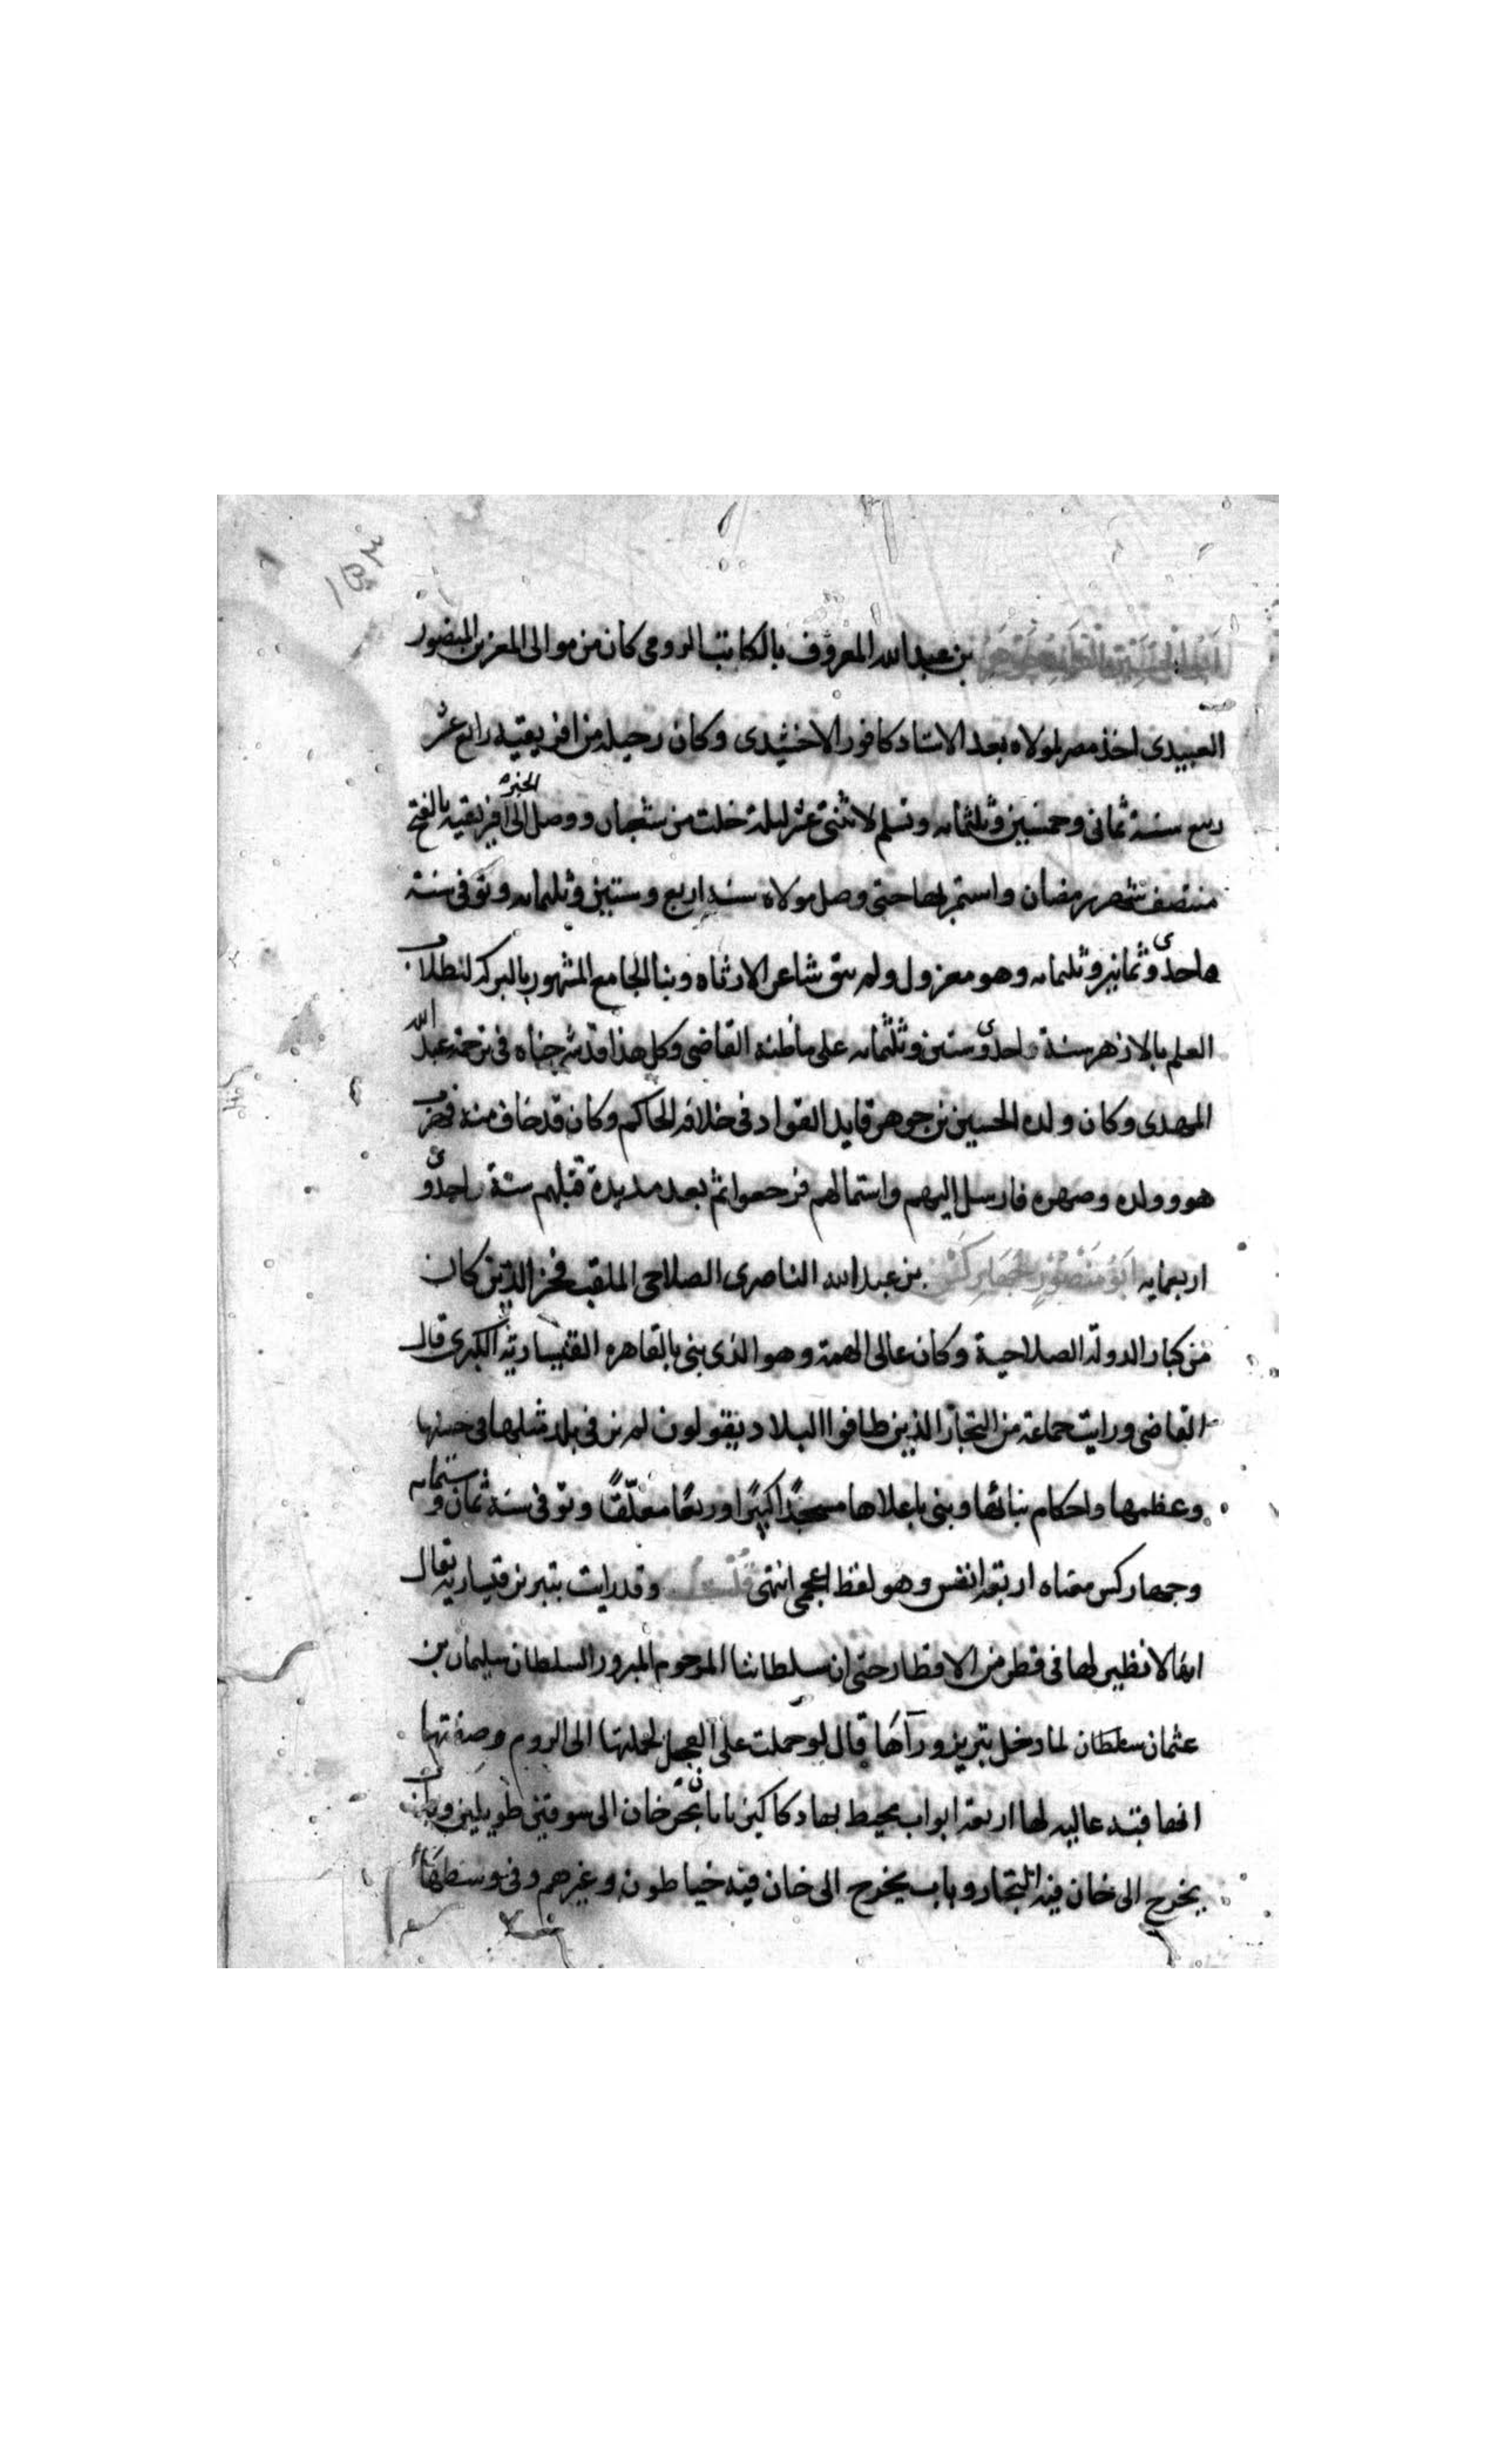 ١٥٣
ابو الحسين القايد جوهر بن عبدالله المعروف بالكاتب الرومى كان من موالى المعز بن المنصور
العبيدى اخذ مصر لمولاه بعد الاستاد كافور الاخشيدى وكان رحيله من افريقية رابع عشر
ربيع سنة ثمانى وخمسين وثلثمايه وتسلم لاثنتى عشر ليلة خلت من شعبان ووصل الخبر الى افريقيه بالفتح
منتصف شهر رمضان واستمر بها حتى وصل مولاه سنة اربع وستين وثلثمايه وتوفى سنة
احدى وثمانين وثلثمايه وهو معزول ولم يبق شاعر الا رثاه وبنا الجامع المشهور بالبركه لطلاب
العلم بالازهر سنة احدى وستين وثلثمايه على ما ظنه القاضى وكل هذا قد شرحناه فى ترجمة عبد الله
المهدى وكان ولده الحسين بن جوهر قايد القواد فى خلافة الحاكم وكان قد خاف منه فهرب
هو وولده وصهره فارسل اليهم واستمالهم فرجعوا ثم بعد مديدة قتلهم سنة احدى و
اربعمايه ابو منصور جهاركس بن عبدالله الناصرى الصلاحى الملقب فخر الدين كان
من كبار الدولة الصلاحية وكان عالى الهمة وهو الذى بنى بالقاهره القيسارية الكبرى قال
القاضى ورايت جماعة من التجار الذين طافوا البلاد يقولون لم نر فى بلد مثلها فى حسنها
وعظمها واحكام بنائها وبنى باعلاها مسجدًا كبيرًا وربعًا معلّقًا وتوفى سنة ثمان وستمايه
وجهاركس معناه اربعة انفس وهو لفظ اعجمى انتهى قلت وقد رايت بتبريز قيسارية يقال
انها لا نظير لها فى قطر من الاقطار حتى ان سلطاننا المرحوم المبرور السلطان سليمان بن
عثمان سلطان لما دخل تبريز ورآها قال لو حملت على العجل لحملتها الى الروم وصفتها
انها قبة عاليه لها اربعة ابواب محيط بها دكاكين بابان يخرجان الى سوقين طويلين وباب
يخرج الى خان فيه التجار وباب يخرج الى خان فيه خياطون وغيرهم وفى وسطها